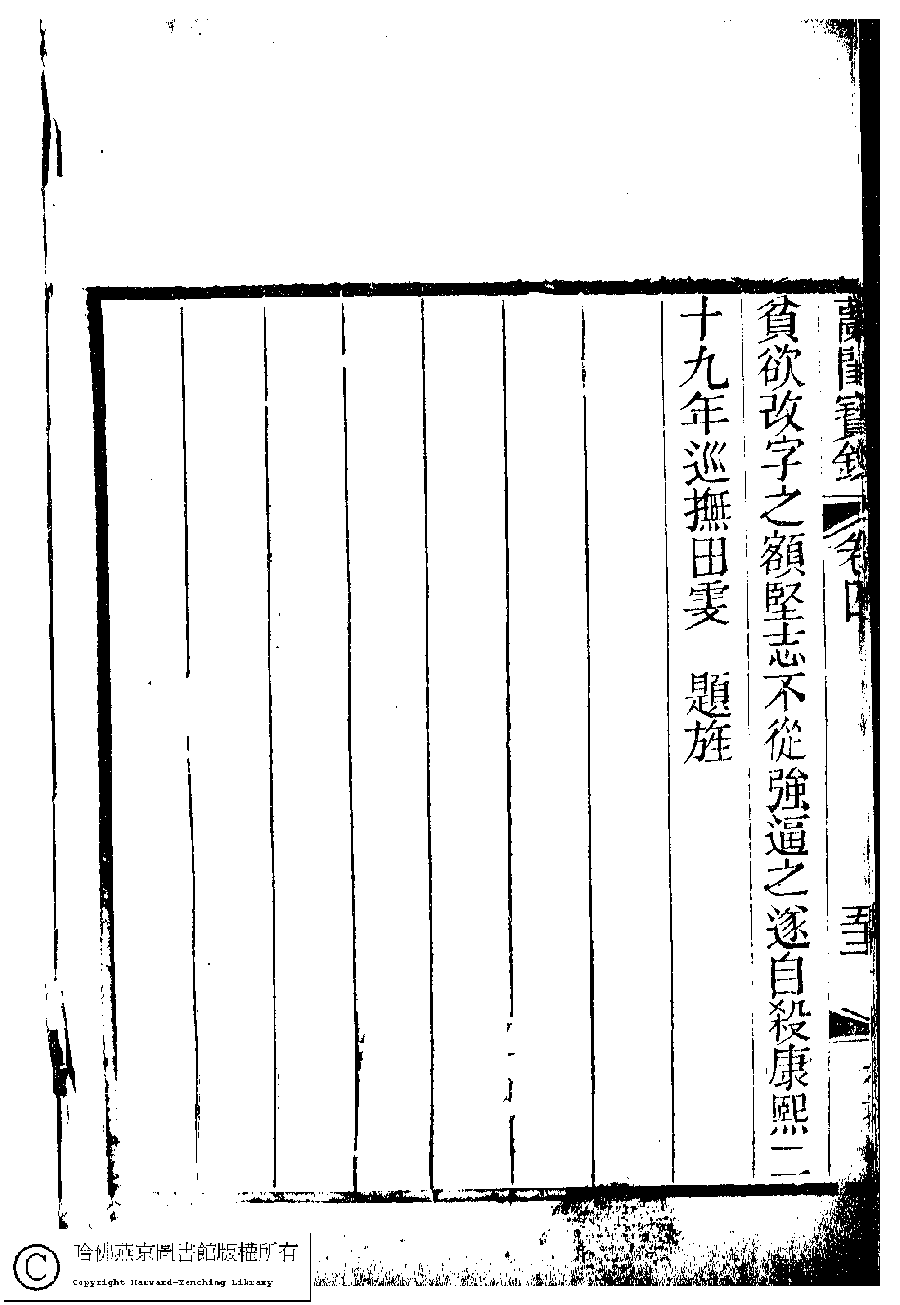 蘭閨寶錄 卷四
貧欲改字之額堅志不從強逼之遂自殺康熙二
十九年巡撫田雯 題旌
哈佛燕京圖書館版權所有
Copyright Harvard-Yenching Library